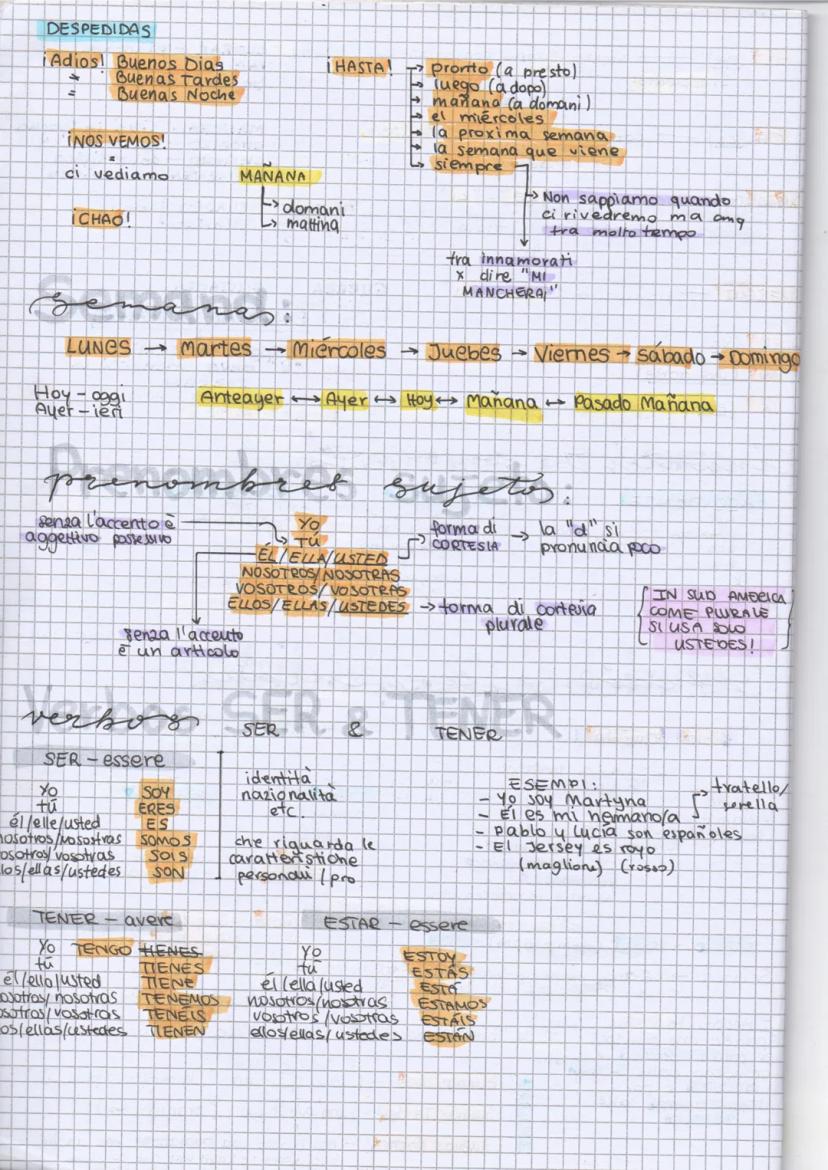 DESPEDIDAS
¡Adios! Buenos Dias
" Buenas Tardes
= Buenas Noche
¡NOS VEMOS!
=
ci vediamo
¡CHAO!
MAÑANA
→ domani
→ mattina
¡HASTA! → pronto (a presto)
→ luego (a dopo)
→ mañana (a domani)
→ el miércoles
→ la proxima semana
→ la semana que viene
→ siempre
→ Non sappiamo quando
ci rivedremo ma anq
tra molto tempo
tra innamorati
x dire "MI
MANCHERAI"
semanas:
LUNES → Martes → Miércoles → Juebes → Viernes → sábado → Domingo
Hoy - oggi
Ayer - ieri
Anteayer ↔ Ayer ↔ Hoy ↔ Mañana ↔ Pasado Mañana
prenombres sujetos:
senza l'accento è
aggettivo possessivo
Yo
TÚ
EL/ELLA/USTED
NOSOTROS/NOSOTRAS
VOSOTROS/VOSOTRAS
ELLOS/ELLAS/USTEDES → forma di cortesia
plurale
forma di
CORTESIA → la "d" si
pronuncia poco
senza l'accento
è un articolo
IN SUD AMERICA
COME PLURALE
SI USA SOLO
USTEDES!
verbos SER & TENER
SER - essere
Yo SOY
tú ERES
él/elle/usted ES
nosotros/vosostras SOMOS
osotros/vosotras SOIS
los/ellas/ustedes SON
identità
nazionalità
etc.
che riguarda le
caratteristiche
personali / pro
ESEMPI:
- Yo soy Martyna
- Él es mi hermano/a → fratello/
sorella
- Pablo y Lucía son españoles
- El Jersey es royo
(maglione) (rosso)
TENER - avere
Yo TENGO TIENES
tú TIENES
él/ella/usted TIENE
osotros/nosotras TENEMOS
osotros/vosotras TENÉIS
os/ellas/ustedes TIENEN
ESTAR - essere
Yo ESTOY
tú ESTÁS
él/ella/usted ESTÁ
nosotros/nosotras ESTAMOS
vosotros/vosotras ESTÁIS
ellos/ellas/ustedes ESTÁN